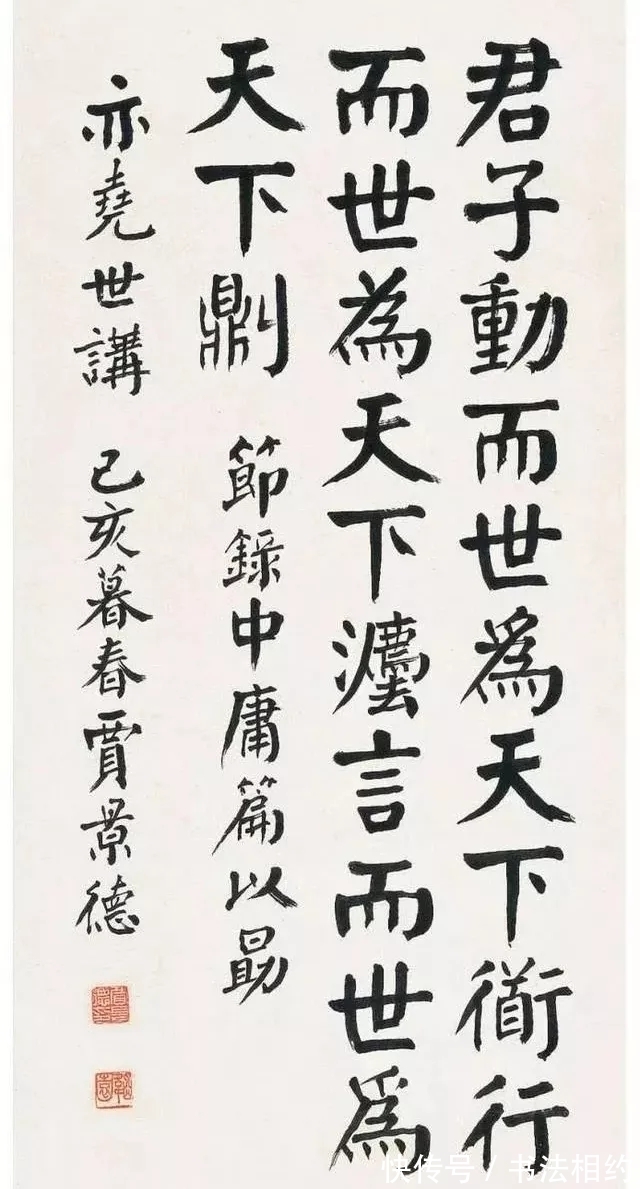 君子動而世爲天下衜行
而世為天下灋言而世爲
天下𠟭 節錄中庸篇以勗
亦堯世講 己亥暮春賈景德
快传号/书法相约